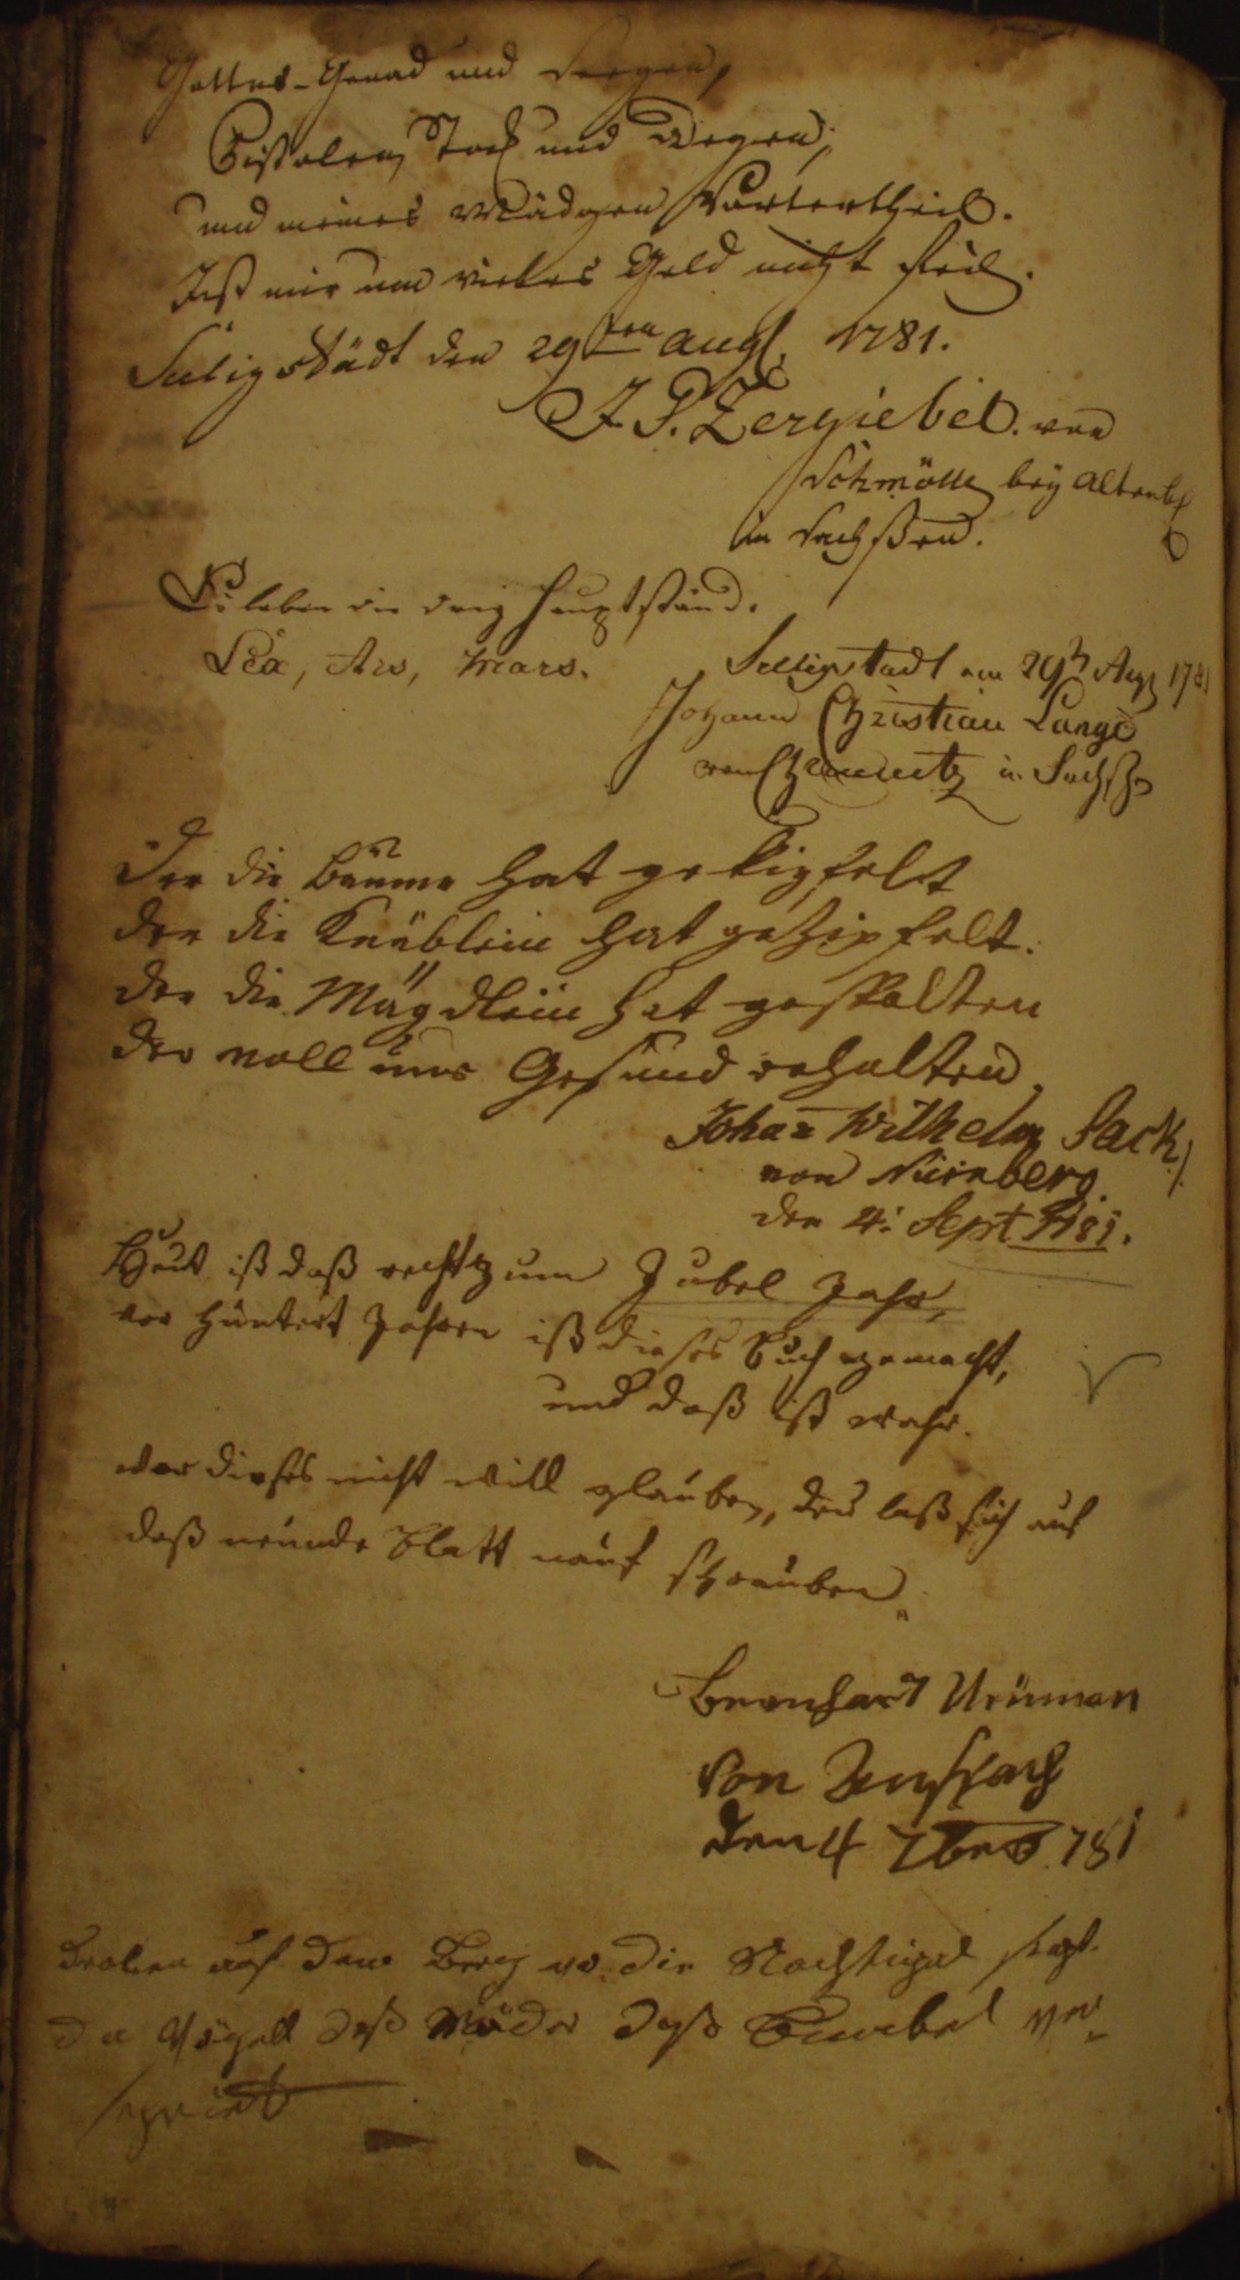 Gottes-Gnad und Seegen,
Pistolen Stock und Degen,
und meines Mädgen Vortertheil.
Ist mir um vieles Geld nicht feil.
Seligstädt den 29ten Aug. 1781.
J. P. Zergiebel. von
Schmölle bey Altenb
in Sachßen.
Es leben die drey Hauptständ.
Lea, Ars, Mars. Seligstadt am 29 Aug 1781
Johann Christian Lange
von Chemnitz in Sachß
Der die Bäume hat gekipfelt
der die Knäblein hat gezipfelt.
der die Mägdlein hat gespalten
der woll uns Gesund erhalten
Johan Wilhelm Sack
von Nürnberg
den 4: Sept 1781.
Heut ist daß recht zum Jubel Jahr,
vor hundert Jahren ist dieses Buch gemacht,
und daß ist wahr.
wer dieses nicht will glauben, der laß sich auf
daß neunde Blatt nauf schrauben
Bernhart Neuman
von Anspach
den 4 7ber 781
Droben auf dem Berg wo die Nachtigal